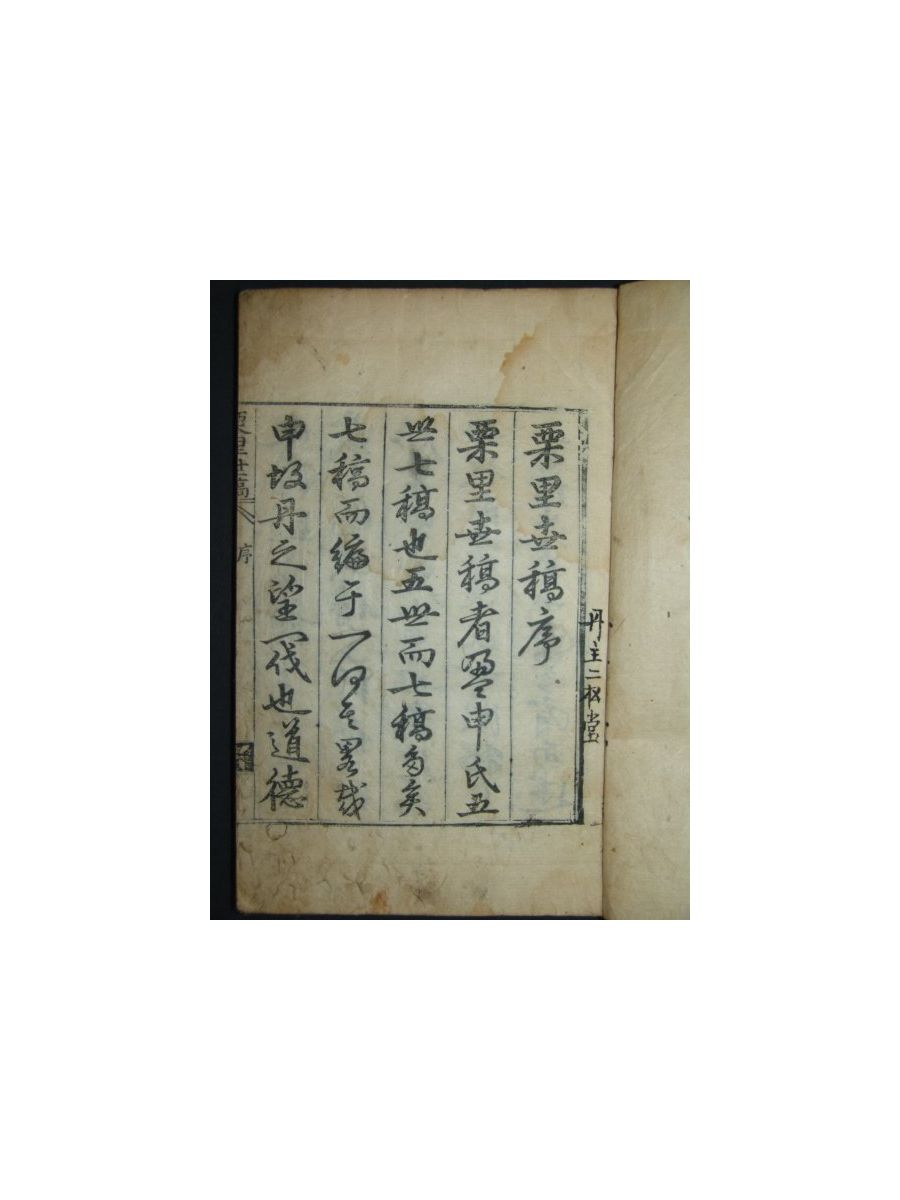 丹主二松堂
栗里世稿序
栗里世稿者寧申氏五
世七稿也五世而七稿多矣
七稿而編于一何其畧哉
申故丹之望閥也道德
栗里世稿 序